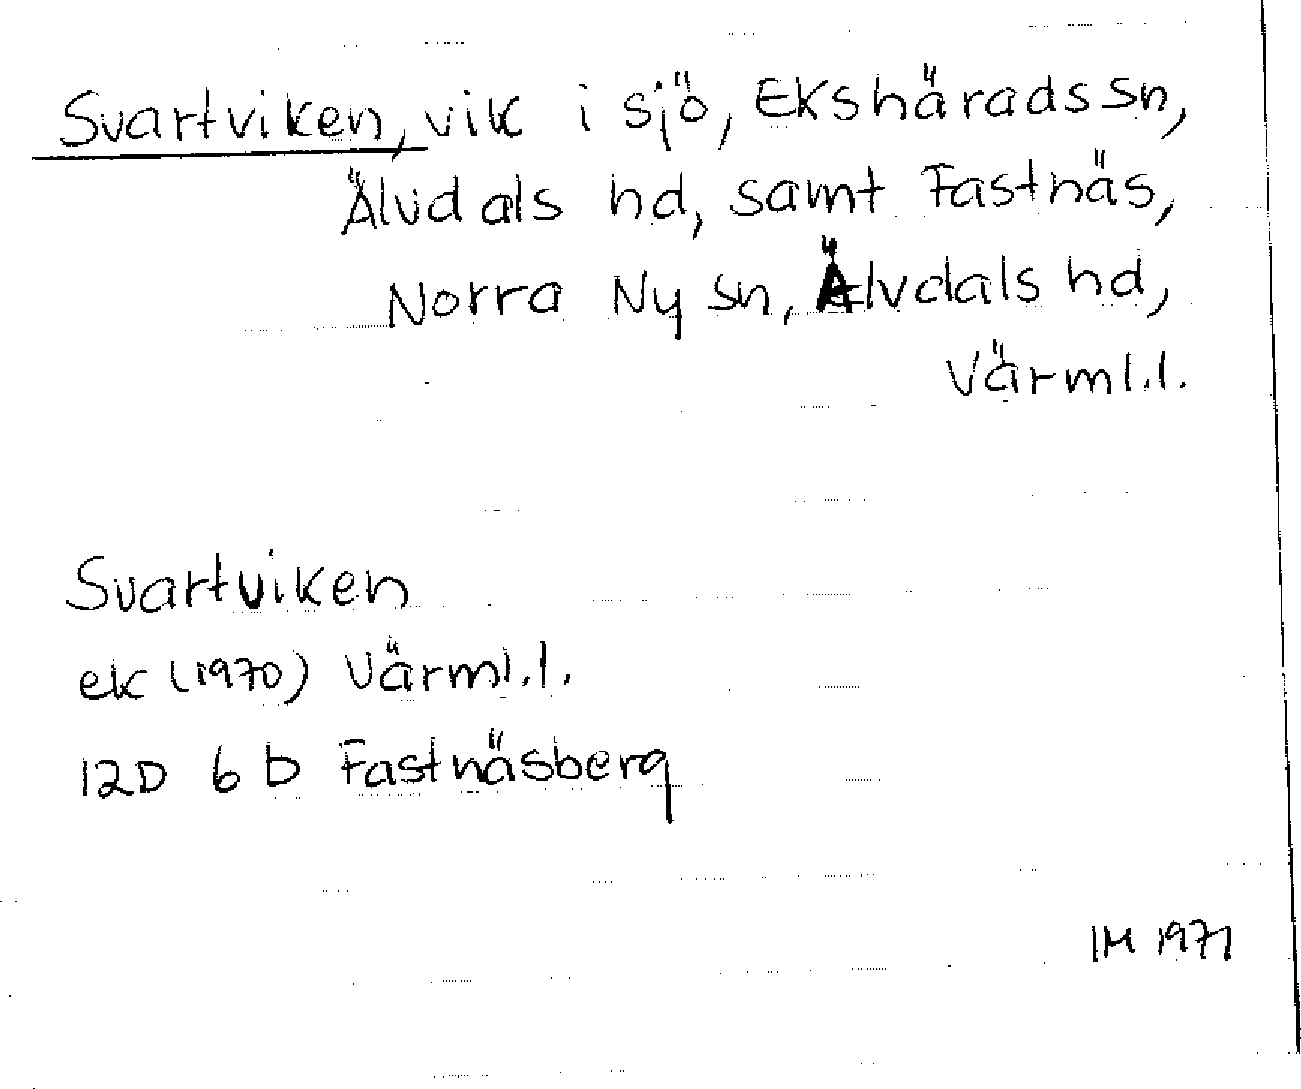 Svartviken, vik i sjö, Ekshärads sn,
Älvdals hd, samt Fastnäs,
Norra Ny sn, Älvdals hd,
Värml.l.
Svartviken
ek (1970) Värml.l.
12D 6 b Fastnäsberg
IM 1971